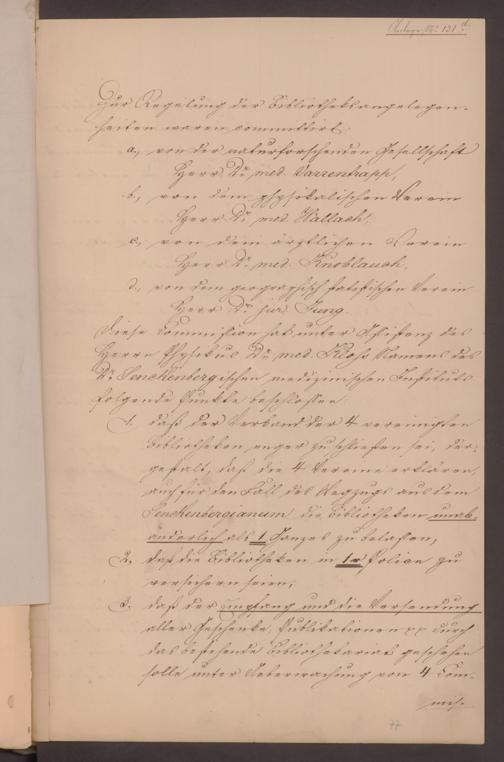 Anlage No 131 d.
Zur Regelung der Bibliotheksangelegen-
heiten waren committirt:
a, von der naturforschenden Gesellschaft
Herr Dr. med. Varrentrapp,
b, von dem physikalischen Verein
Herr Dr. med. Wallach,
c, von dem ärztlichen Verein
Herr Dr. med. Knoblauch,
d, von dem geographisch statistischen Verein
Herr Dr. jur. Jung.
Diese Commission hat unter Assistenz des
Herrn Physikus Dr. med. Kloß Namens des
Dr. Senckenbergischen medizinischen Instituts
folgende Punkte beschlossen
1. daß der Verband der 4 vereinigten
Bibliotheken enger zu schließen sei, der-
gestalt, daß die 4 Vereine erklären,
auch für den Fall des Wegzugs aus dem
Senckenbergianum die Bibliotheken unab-
änderlich als 1 Ganzes zu belassen,
2. daß die Bibliotheken in 1r Police zu
versichern seien,
3. daß der Empfang und die Versendung
aller Geschenke, Publikationen pp durch
das bestehende Bibliothekariat geschehen
solle unter Ueberwachung von 4 Com-
mis-
77